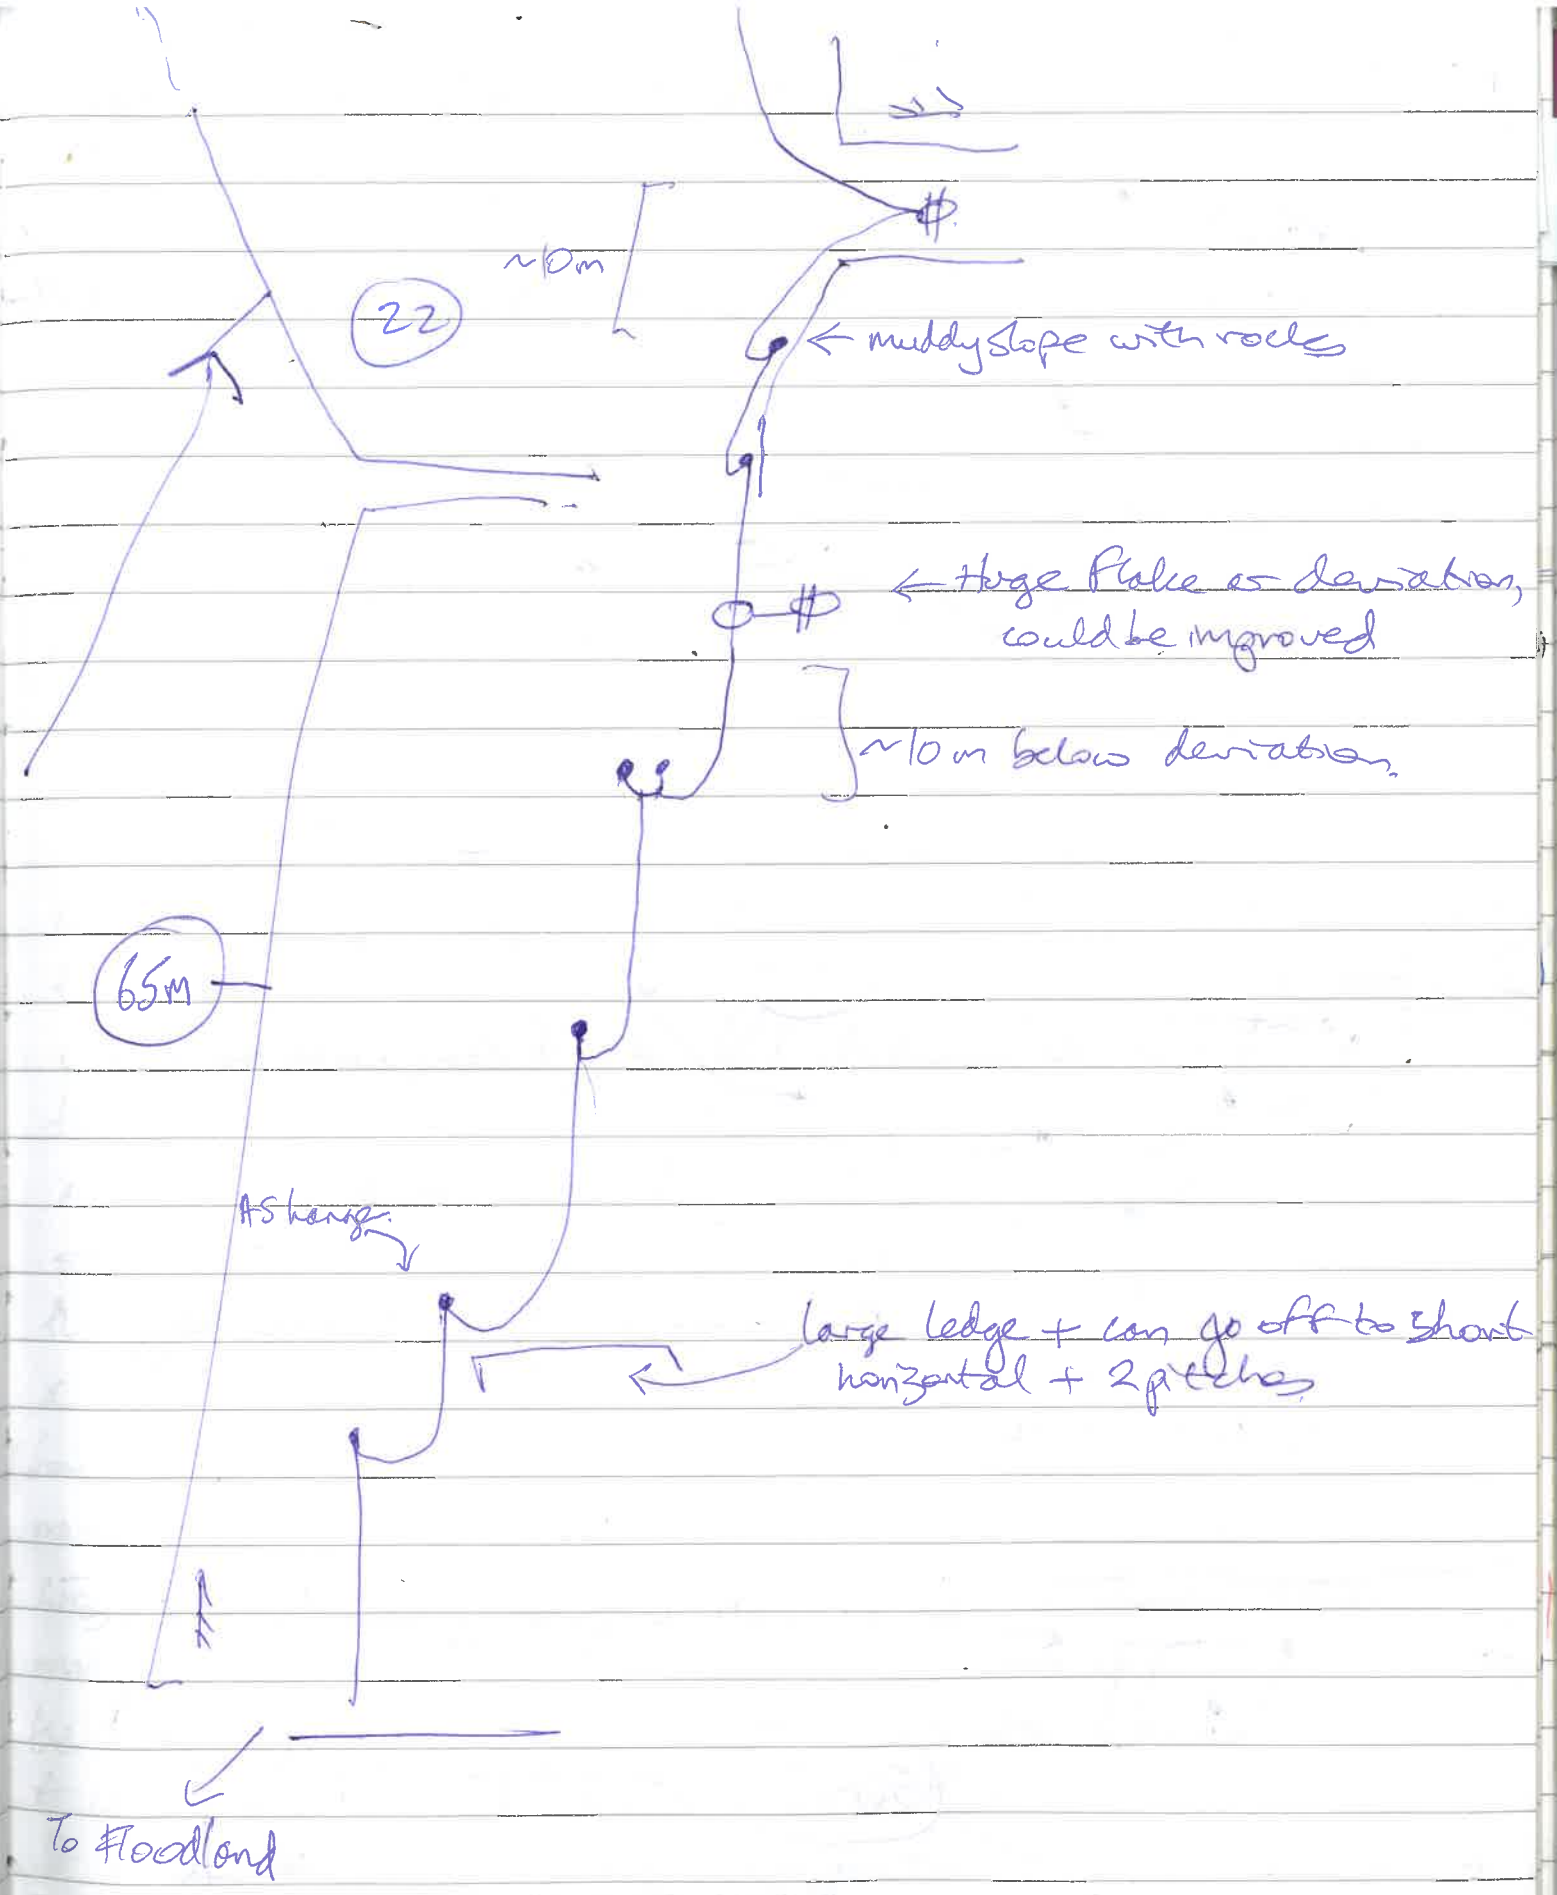 ~10m
22
← muddy slope with rocks
← Huge flake as deviation,
could be improved
~10m below deviation.
65m
AS hanger.
large ledge + can go off to short
horizontal + 2 pitches
To Floodland